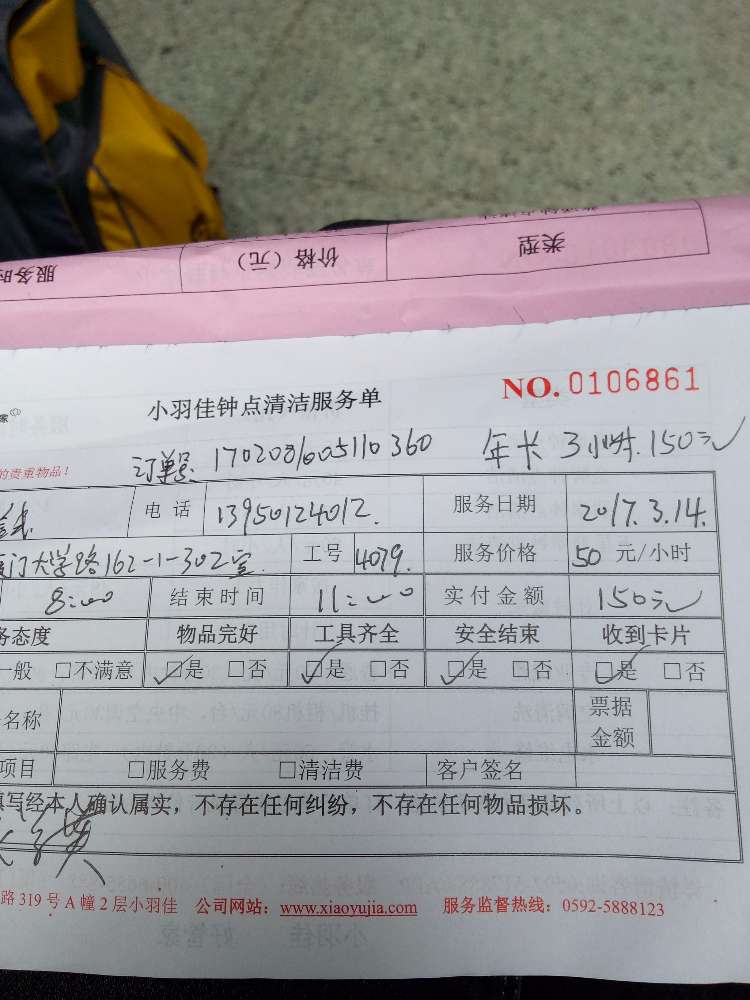 类型
价格（元）
服务时
NO. 0106861
小羽佳钟点清洁服务单
的贵重物品！
订单号: 17020816005110360 年长 3小时. 150元
电话 13950124012. 服务日期 2017.3.14.
门大学路162-1-302室 工号 4079. 服务价格 50 元/小时
8:00 结束时间 11:00 实付金额 150元
务态度 物品完好 工具齐全 安全结束 收到卡片
一般 □不满意 ☑是 □否 ☑是 □否 ☑是 □否 ☑是 □否
名称 票据金额
项目 □服务费 □清洁费 客户签名
填写经本人确认属实，不存在任何纠纷，不存在任何物品损坏。
路 319 号 A 幢 2 层小羽佳 公司网站：www.xiaoyujia.com 服务监督热线：0592-5888123